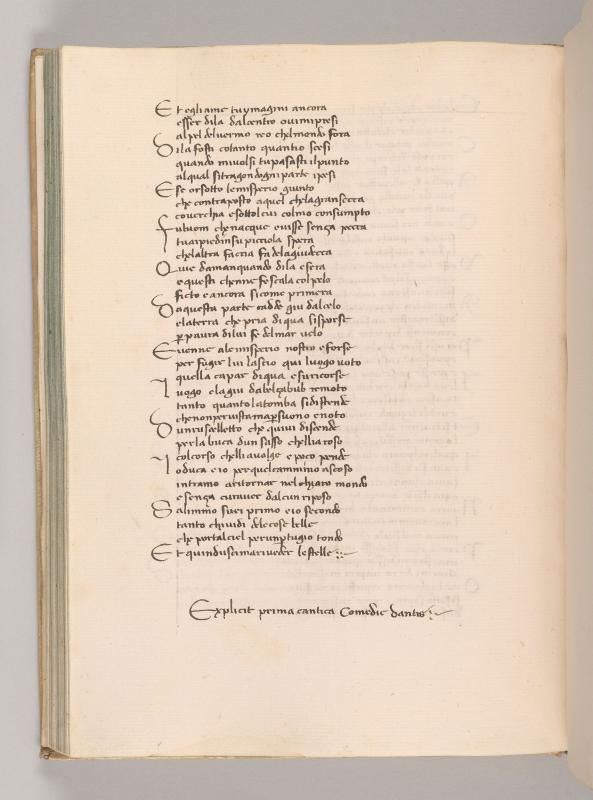 Et egli ame tu ymagini ancora
esser dila dalcentro ouimipresi
alpel deluermo reo chelmondo fora
Dila fosti cotanto quantio scesi
quando miuolsi tupasasti ilpunto
alqual sitragondogni parte ipesi
E se orsotto lemisperio giunto
che contraposto aquel chelagransecca
couerchia esottolcui colmo consumpto
fuluom chenacque euisse senza pecca
tuaipiedinsu picciola spera
chelaltra facaia fa delagiudecca
Quie damanquando dila esera
e questi chenne fescala colpelo
ficto e ancora sicome primera
Da questa parte cadde giu dalcielo
elaterra che pria di qua sisporse
ꝑ paura dilui fe delmar uelo
E uenne alemisperio nostro eforse
per fugir lui lascio qui luogo uoto
quella capar diqua esuricorse
Luogo elagiu dabelzabub remoto
tanto quanto latomba sidistende
che non peruistama ꝑ suono enoto
Dunruscelletto che quiui discende
perla buca dun sasso chelliaroso
colcorso chelliauolge e poco pende
Loduca e io perquelcammino ascoso
intramo aritornar nel chiaro mondo
e senza curauer dalcun riposo
Salimmo suei primo e io secondo
tanto chiuidi dele cose belle
che portalciel perunꝑtugio tondo
Et quinduscimariueder lestelle
Explicit prima cantica Comedie dantis